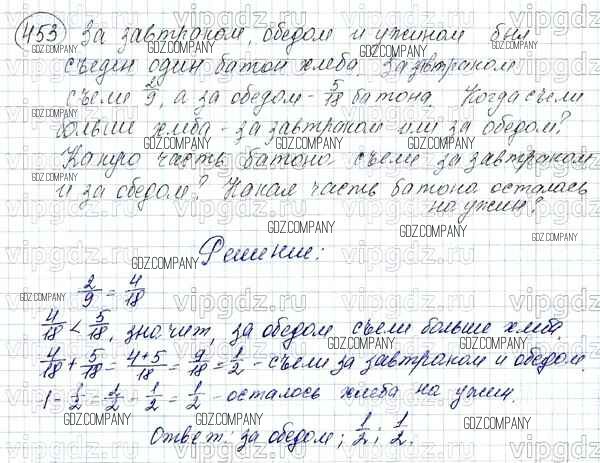 453 За завтраком, обедом и ужином был
съеден один батон хлеба. За завтраком
съели 2/9, а за обедом - 5/18 батона. Когда съели
больше хлеба - за завтраком или за обедом?
Какую часть батона съели за завтраком
и за обедом? Какая часть батона осталась
на ужин?
Решение:
2/9 = 4/18
4/18 < 5/18, значит, за обедом съели больше хлеба.
4/18 + 5/18 = 4+5/18 = 9/18 = 1/2 - съели за завтраком и обедом.
1 - 1/2 = 2/2 - 1/2 = 1/2 - осталось хлеба на ужин.
Ответ: за обедом; 1/2; 1/2.
vipgdz.ru
GDZ.COMPANY